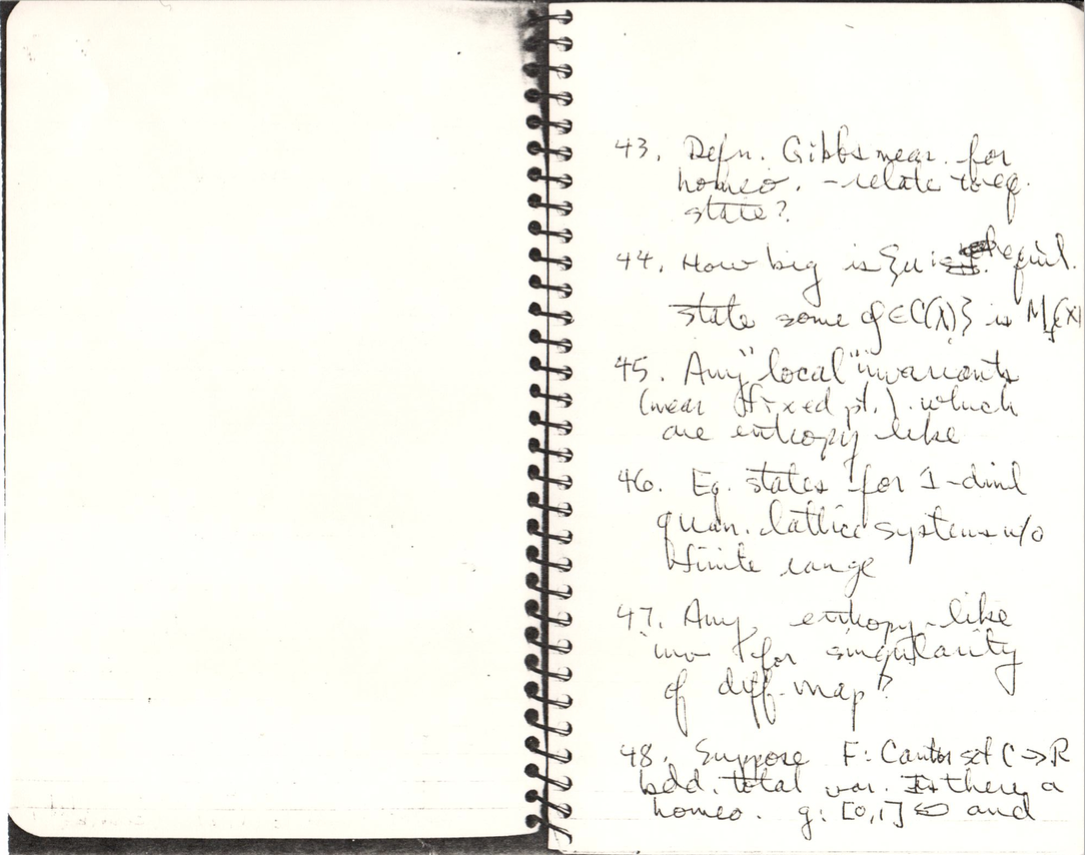 43. Defn. Gibbs meas. for
homeo. - relate to eq.
state?
44. How big is {μ: equil.
state some φ∈C(X)} in M_f(X)
45. Any "local" invariants
(near fixed pt.) which
are entropy like
46. Eq. states for 1-diml
quan. lattice systems w/o
finite range
47. Any entropy-like
inv for singularity
of diff. map?
48. Suppose F: Cantor set C → R
bdd. total var. Is there a
homeo. g: [0,1] ↩ and